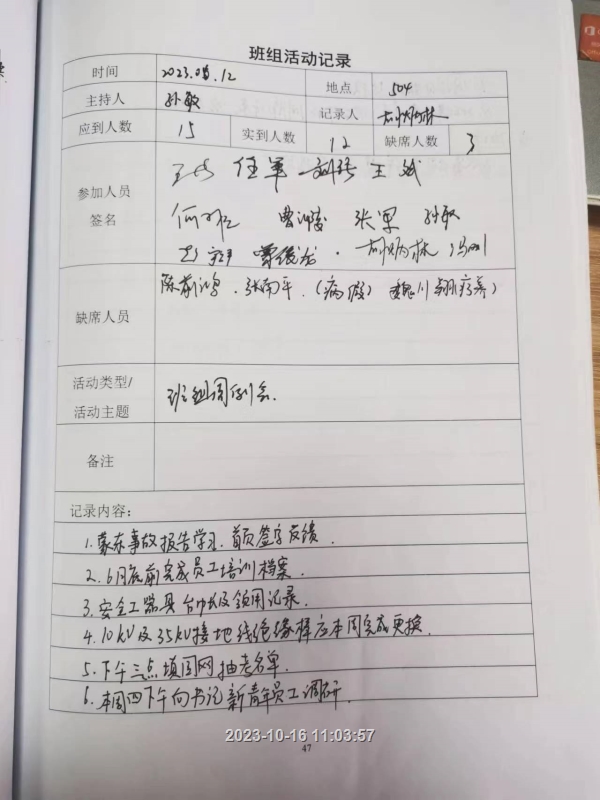 班组活动记录
时间 2023.06.12 地点 504
主持人 孙敏 记录人 胡炳林
应到人数 15 实到人数 12 缺席人数 3
参加人员 任军 王斌
签名 张军 孙敏
胡炳林 冯刚
缺席人员 陈前鸿、张南平、(病假) 魏川翔(疗养)
活动类型/ 班组周例会.
活动主题
备注
记录内容:
1.蒙东事故报告学习、首页签字反馈.
2.6月底前完成员工培训档案.
3.安全工器具台帐及领用记录.
4.10kV及35kV接地线绝缘棒应本周完成更换.
5.下午三点填国网抽考名单.
6.本周四下午向书记新青年员工调研.
2023-10-16 11:03:57
47